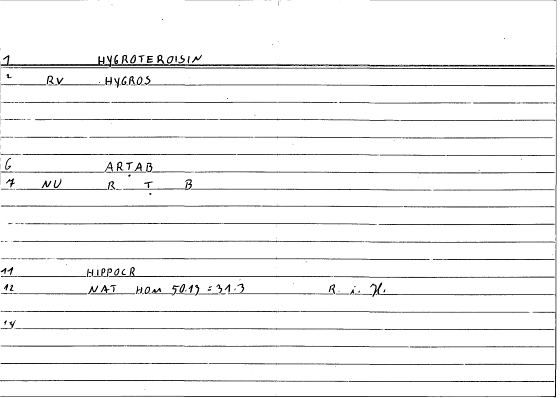 1 HYGROTEROISIN
2 RV HYGROS
6 ARṬAB
7 NU R Ṭ B
11 HIPPOCR
12 NAT HOM 50.19 = 31.3 R. i. H.
14